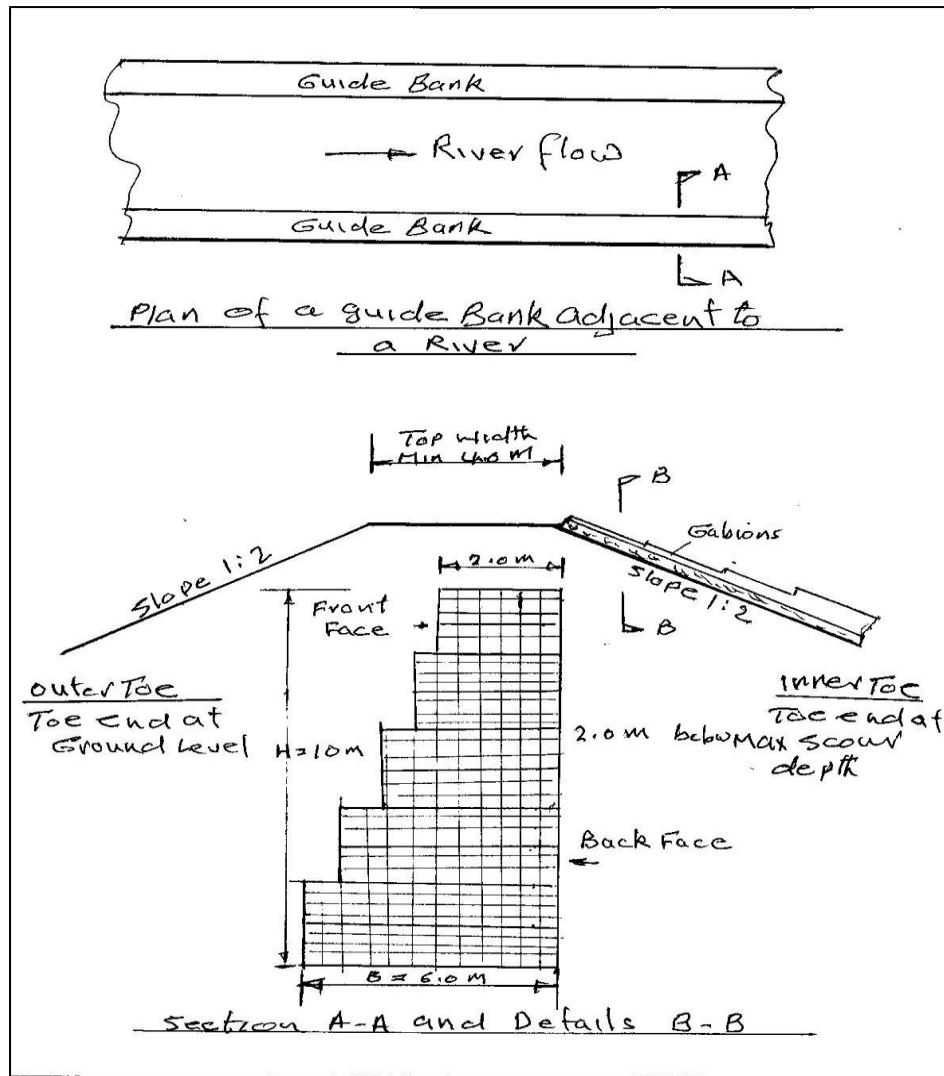 Guide Bank
River flow
A
Guide Bank
A
Plan of a guide Bank adjacent to
a River
Top width
Min 4.0 M
B
Gabions
Slope 1:2
Slope 1:2
2.0 m
B
Front
Face
outer Toe
Toe end at
Ground Level
inner Toe
Toe end at
2.0 m below Max scour
depth
H=10m
Back Face
B = 6.0 M
Section A-A and Details B-B